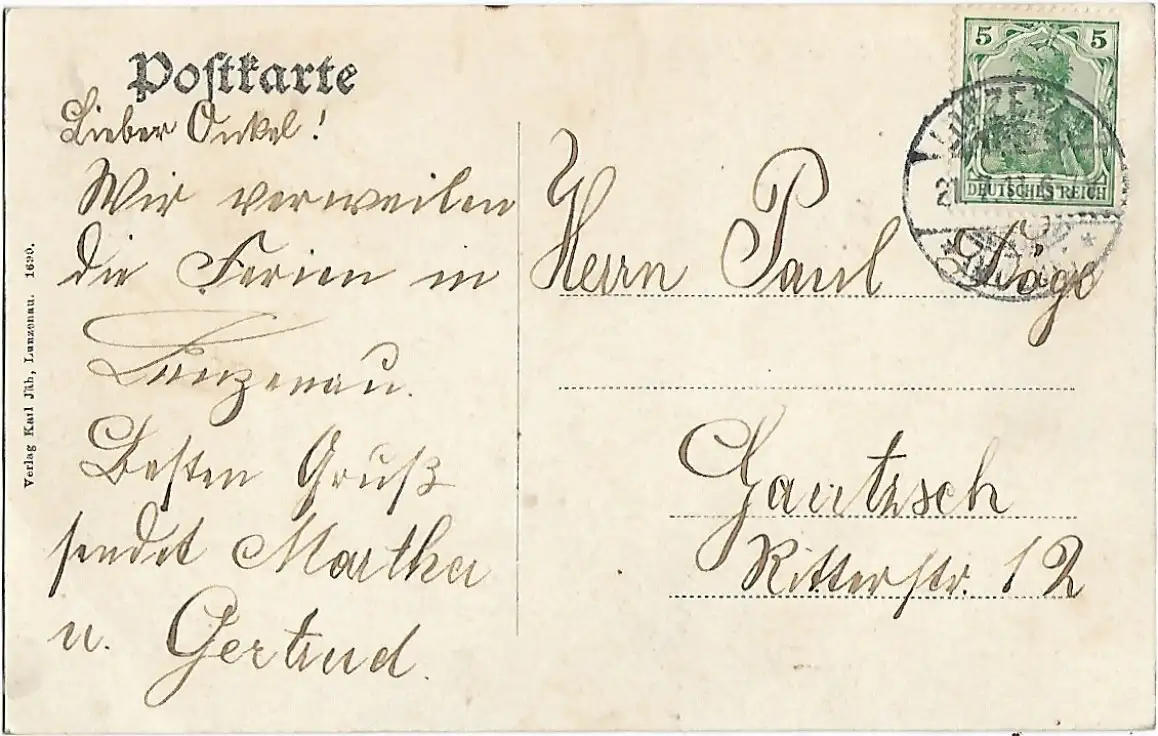 Postkarte
Lieber Onkel!
Wir verweilen
die Ferien in
Lunzenau.
Besten Gruß
sendet Martha
u. Gertrud.
Verlag Karl Jäh, Lunzenau. 1690.
5 5
DEUTSCHES REICH
Herrn Paul
Gautzsch
Ritterstr. 12